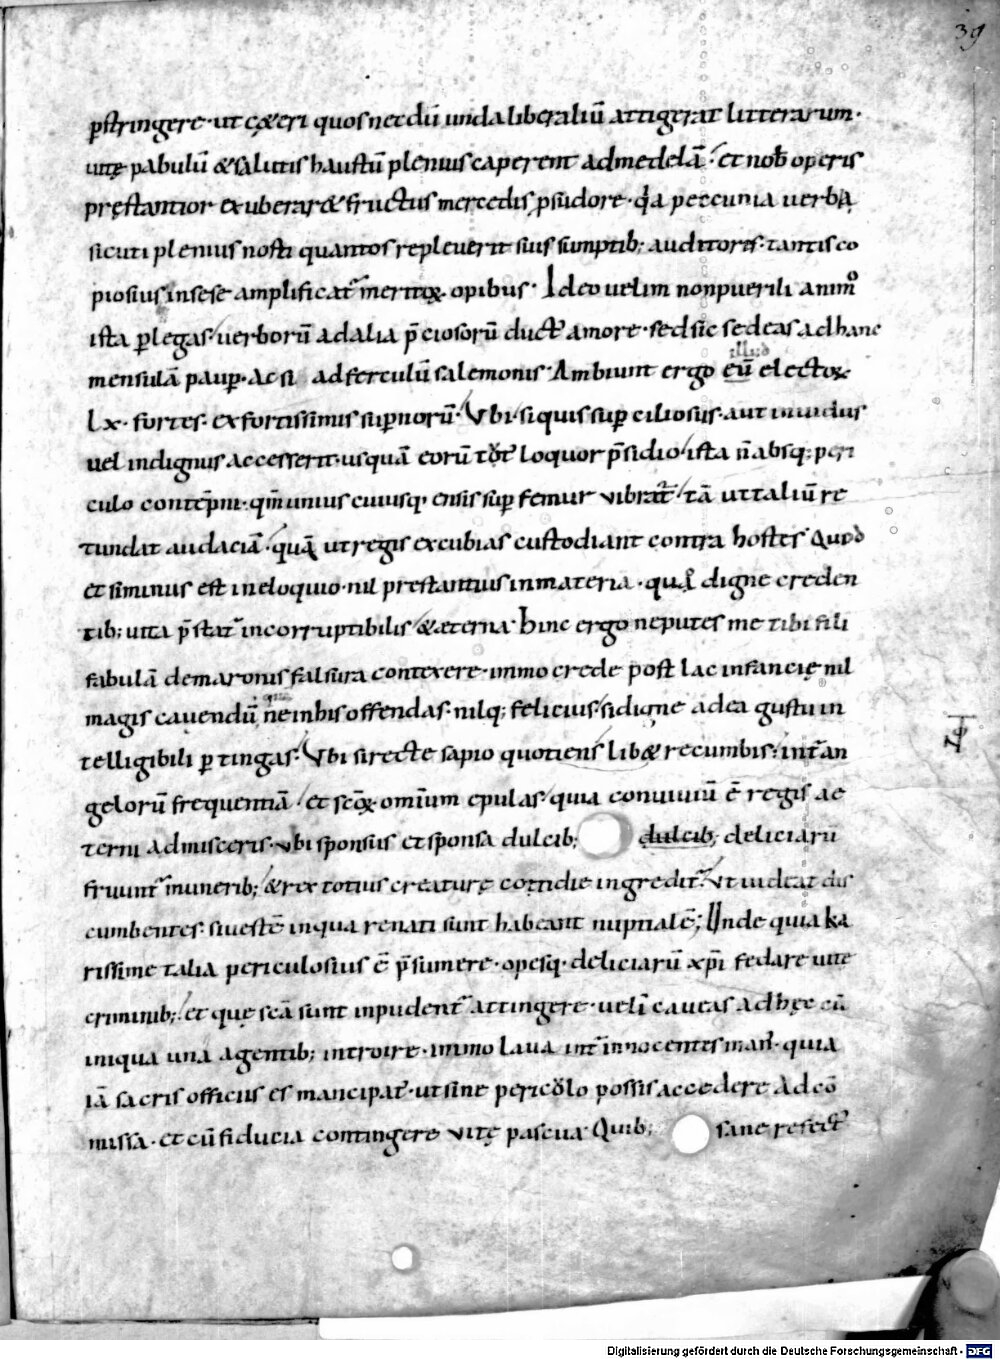 39
pstringere· ut cęteri quos necdū unda liberaliū attigerat litterarum·
uitę pabulū & salutis haustū plenius caperent ad medelā· et nob operis
pręstantior exuberar& fructus mercedis p sudore· qa peccunia uerba
sicuti plenius nosti quantos repleuerit suis sumptib; auditores· tantis co
piosius in sese amplificat meritoꝝ opibus· Ideo uelim non puerili animo
ista plegas· uerborū ad alia p̄ciosorū duct amore· sed sic sedeas ad hanc
mensulā paup· ac si ad ferculū salemonis· Ambiunt ergo eū electoꝝ
illud
Lx· fortes· ex fortissimis supnorū· Vbi· si quis sup ciliosus· aut inuidus
uel indignus accesserit· usquā eorū tot loquor p̄sidio· ista n̄ absq; peri
culo contēpni· qm̄ unius cuiusq ensis sup femur vibrat· tā ut taliū re
tundat audaciā· quā ut regis excubias custodiant contra hostes Quod
et si minus est in eloquio· nil prestantius in materia· qua digne creden
tib; uita p̄stat incorruptibilis & æterna· Hinc ergo ne putes me tibi fili
fabulā de maronis falsura contexere· immo crede post lac infancię nil
magis cauendū ne in his offendas· nilq; felicius· si digne ad ea gustu in
telligibili p tingas· Vbi si recte sapio quotiens lib& recumbis· int an
gelorū frequentiā· et scōꝝ omīum epulas· quia conuiuiū ē regis ae
terni admisceris· vbi sponsus et sponsa dulcib; dulcib; deliciarū
fruunt munerib; & rex totius creaturę cottidie ingredit· Vt uideat dis
cumbentes· si uestē in qua renati sunt habeant nuptialē; Unde quia ka
rissime talia periculosius ē p̄sumere· opesq· deliciarū xpī fedare uite
criminib; et que scā sunt inpudent attingere· uelī caueas ad hęc cū
iniqua una agentib; introire· immo laua int innocentes man· quia
iā sacris officiis es mancipat· ut sine periculo possis accedere ad cō
missa· et cū fiducia contingere vitę pascua· Quib; sane refect
Digitalisierung gefördert durch die Deutsche Forschungsgemeinschaft - DFG